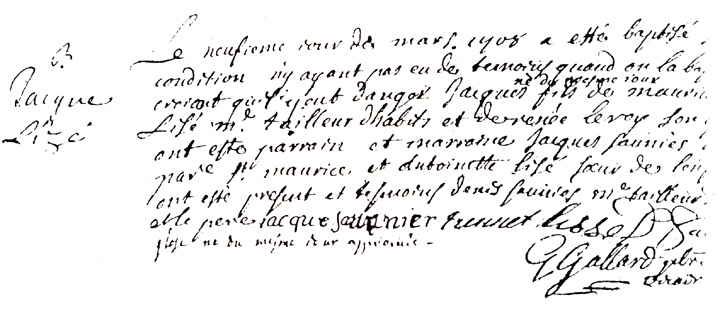 B
Jacque
Lizé
Le neufieme jour de mars 1708 a etté baptisé
condition ny ayant pas eu de temoins quand on la
né du mesme jour
creiant quil y eut danger Jacques fils de mauri
Lisé m.e tailleur dhabits et de renée leroy son
ont esté parrain et marraine Jacques saunier
par.e S.t maurice et antoinette lisé sœur de
ont esté present et tesmoins denis saunier m.e tailleur
et le pere jacque saunnier lisse
né du mesme jour approuvé
G Gallard pbre
vicaire